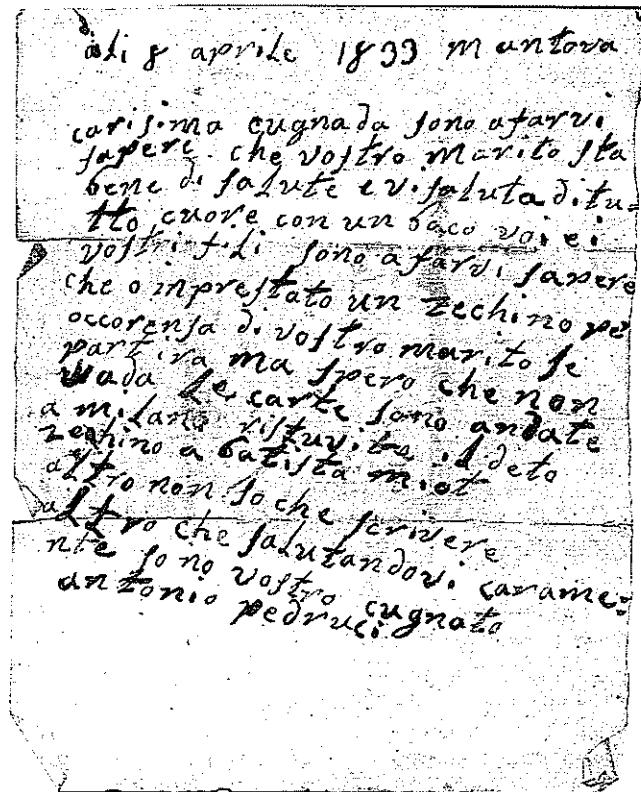 adi 8 aprile 1833 mantova
carisima cugnada sono afarvi
sapere che vostro marito sta
bene di salute e vi saluta di tu=
tto cuore con un baco voi ei
vostri fili sono afarvi sapere
che o inprestato un zechino pe
occorensa di vostro marito se
partira ma spero che non
vada le carte sono andate
a milano ristuvite il deto
zechino a batista miot
altro non so che scrivere
altro che salutandovi carame=
nte sono vostro cugnato
antonio pedruci